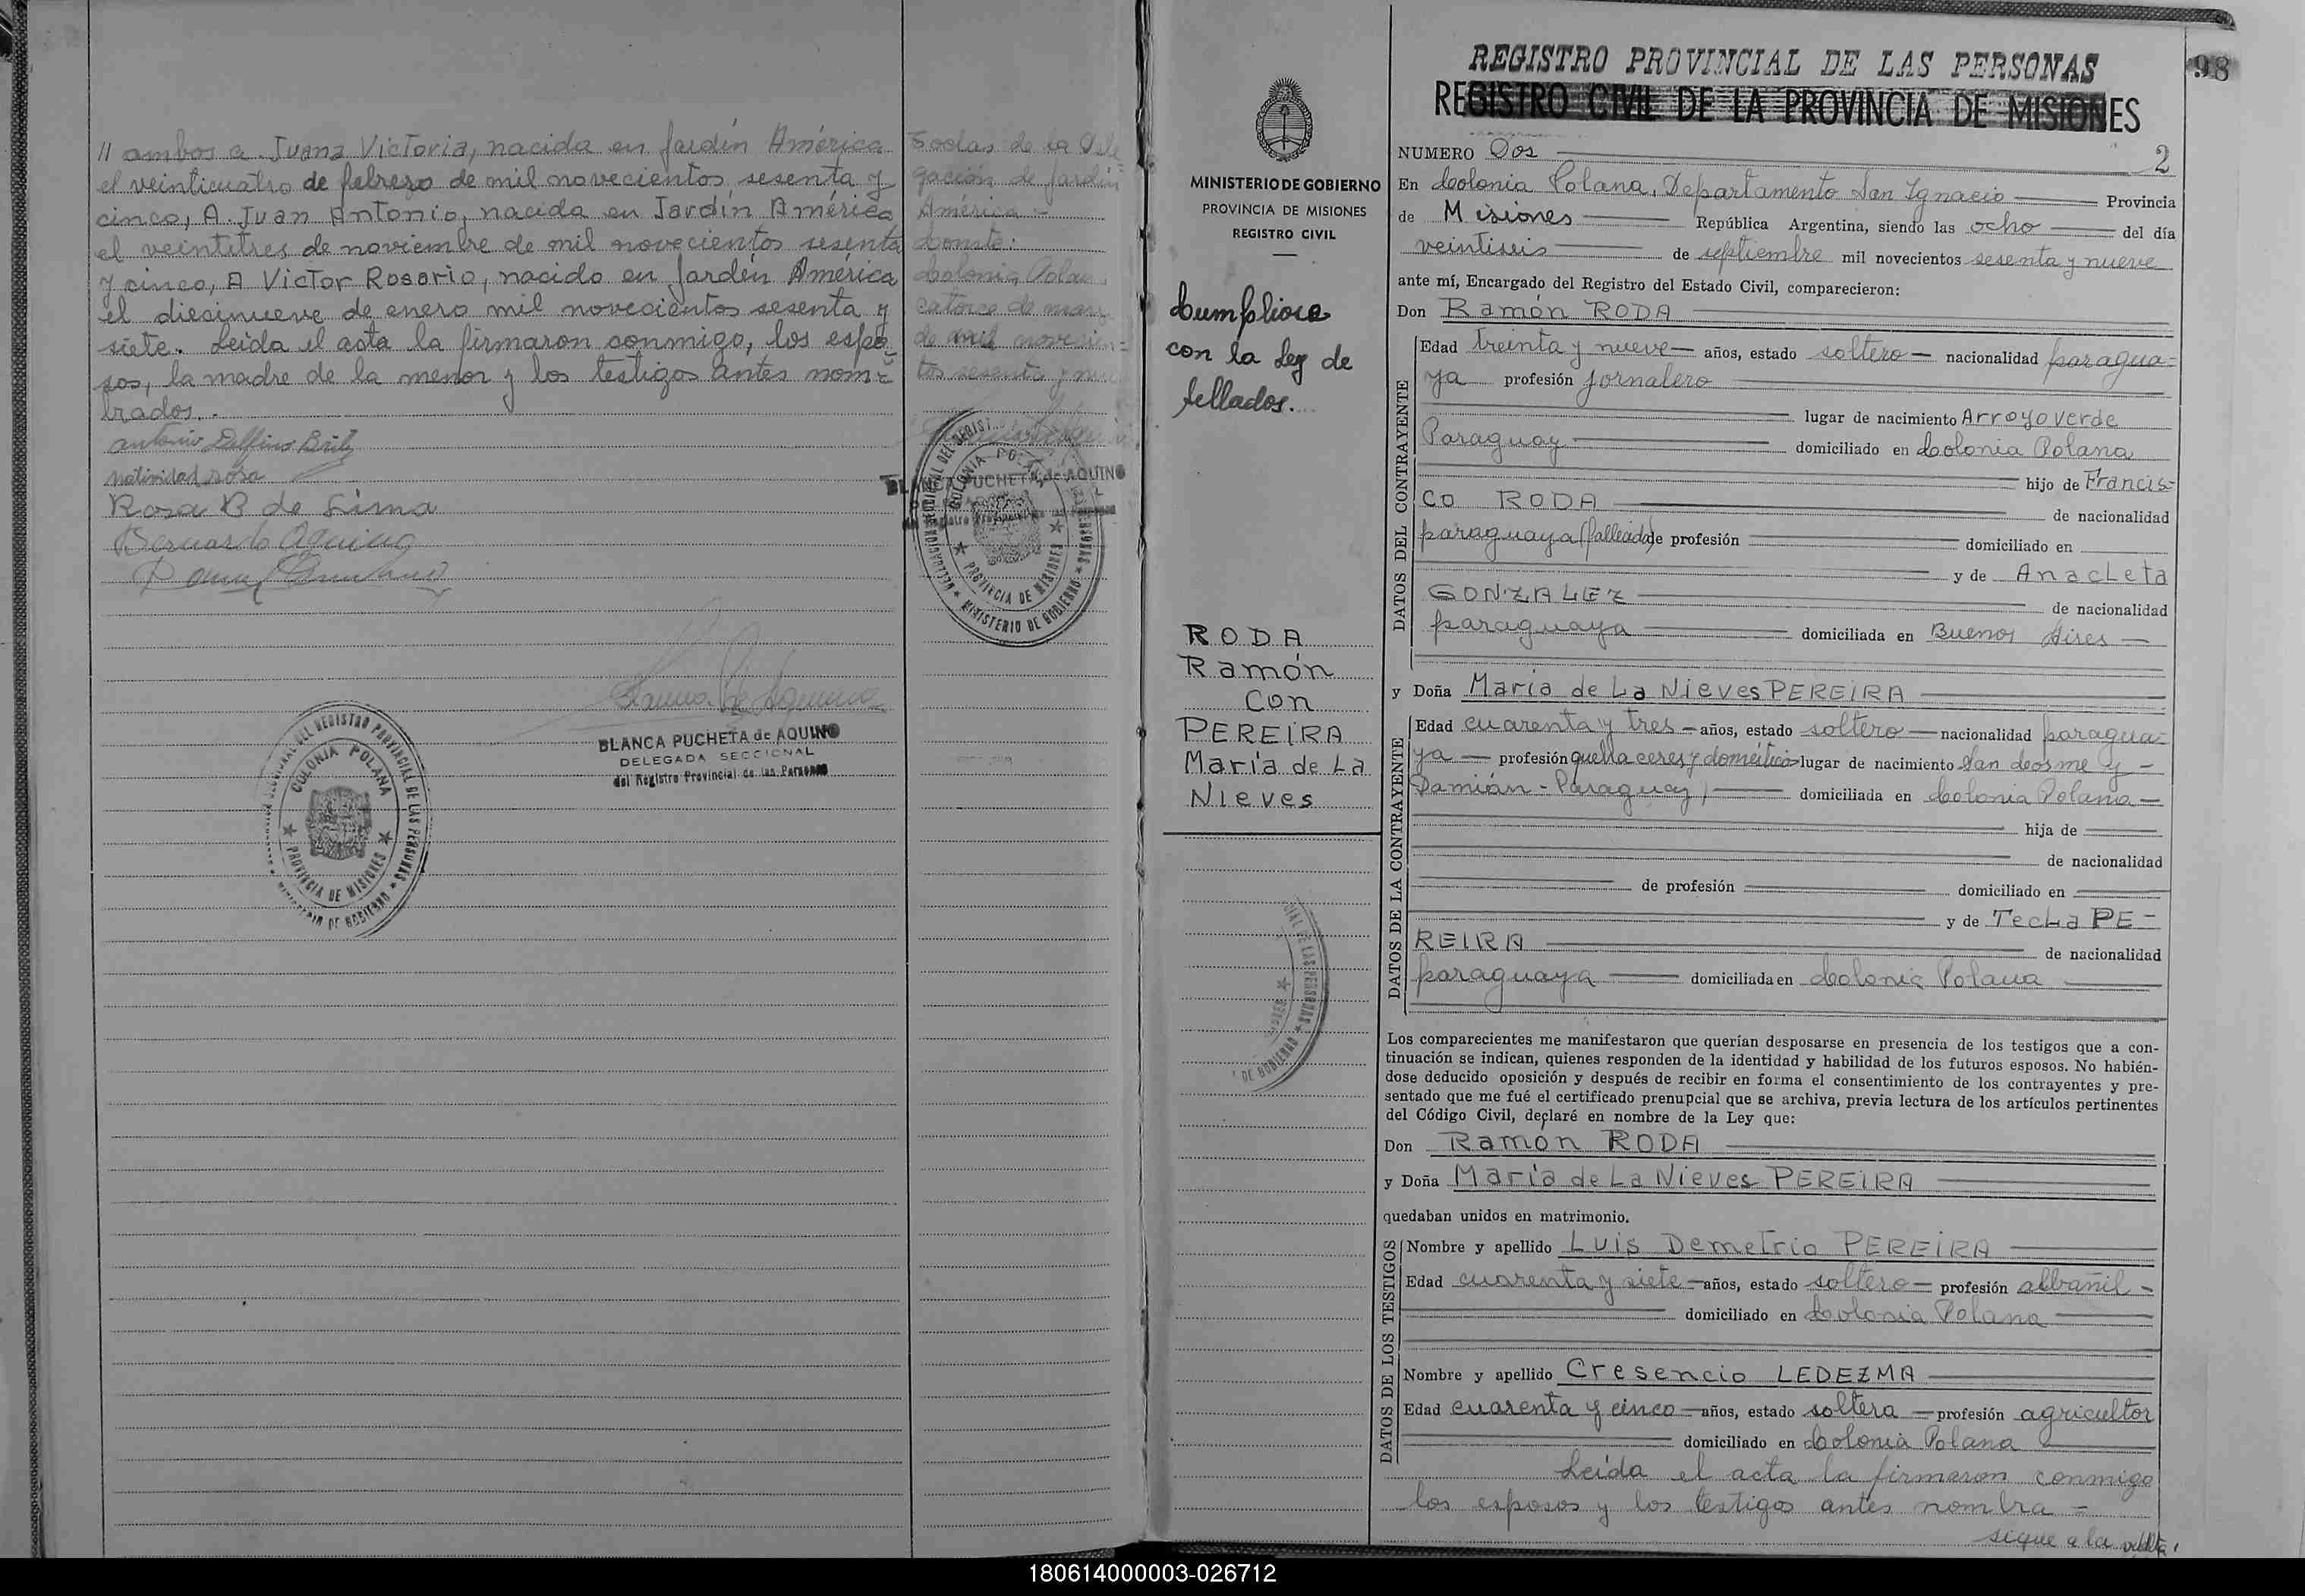 // ambos a Juana Victoria, nacida en Jardín América
el veinticuatro de febrero de mil novecientos sesenta y
cinco, A Juan Antonio, nacida en Jardín América
el veintitres de noviembre de mil novecientos sesenta
y cinco, A Victor Rosario, nacido en Jardín América
el diecinueve de enero mil novecientos sesenta y
siete. Leida el acta la firmaron conmigo, los espo-
sos, la madre de la menor y los testigos antes nom-
brados.
antonio Delfino Britez
natividad rosa
Rosa B de Lima
Bernardo Aquino
BLANCA PUCHETA de AQUINO
DELEGADA SECCIONAL
del Registro Provincial de las Personas
COLONIA POLANA
PROVINCIA DE MISIONES
de la Dele-
gación de Jardín
América -
Conste:
Colonia Polana
catorce de
de mil novecien-
tos sesenta y
BLANCA PUCHETA de AQUINO
PROVINCIA DE MISIONES
MINISTERIO DE GOBIERNO
98
MINISTERIO DE GOBIERNO
PROVINCIA DE MISIONES
REGISTRO CIVIL
Cumpliose
con la Ley de
sellados.
RODA
Ramón
Con
PEREIRA
María de La
Nieves
REGISTRO PROVINCIAL DE LAS PERSONAS
REGISTRO CIVIL DE LA PROVINCIA DE MISIONES
NUMERO Dos 2
En Colonia Polana, Departamento San Ignacio Provincia
de Misiones República Argentina, siendo las ocho del día
veintiseis de septiembre mil novecientos sesenta y nueve
ante mí, Encargado del Registro del Estado Civil, comparecieron:
Don Ramón RODA
DATOS DEL CONTRAYENTE
Edad treinta y nueve años, estado soltero nacionalidad paragua-
ya profesión jornalero
lugar de nacimiento Arroyo verde
Paraguay domiciliado en Colonia Polana
hijo de Francis-
co RODA de nacionalidad
paraguaya (fallecido) de profesión domiciliado en
y de Anacleta
GONZALEZ de nacionalidad
paraguaya domiciliada en Buenos Aires
y Doña María de La Nieves PEREIRA
DATOS DE LA CONTRAYENTE
Edad cuarenta y tres años, estado soltero nacionalidad paragua-
ya profesión quehaceres y domésticos lugar de nacimiento San Cosme y
Damián - Paraguay, domiciliada en Colonia Polana
hija de
de nacionalidad
de profesión domiciliado en
y de Tecla PE-
REIRA de nacionalidad
paraguaya domiciliada en Colonia Polana
Los comparecientes me manifestaron que querían desposarse en presencia de los testigos que a con-
tinuación se indican, quienes responden de la identidad y habilidad de los futuros esposos. No habién-
dose deducido oposición y después de recibir en forma el consentimiento de los contrayentes y pre-
sentado que me fué el certificado prenupcial que se archiva, previa lectura de los artículos pertinentes
del Código Civil, declaré en nombre de la Ley que:
Don Ramón RODA
y Doña María de La Nieves PEREIRA
quedaban unidos en matrimonio.
DATOS DE LOS TESTIGOS
Nombre y apellido Luis Demetrio PEREIRA
Edad cuarenta y siete años, estado soltero profesión albañil
domiciliado en Colonia Polana
Nombre y apellido Cresencio LEDEZMA
Edad cuarenta y cinco años, estado soltera profesión agricultor
domiciliado en Colonia Polana
Leída el acta la firmaron conmigo
los esposos y los testigos antes nombra-
sigue a la vuelta
180614000003-026712